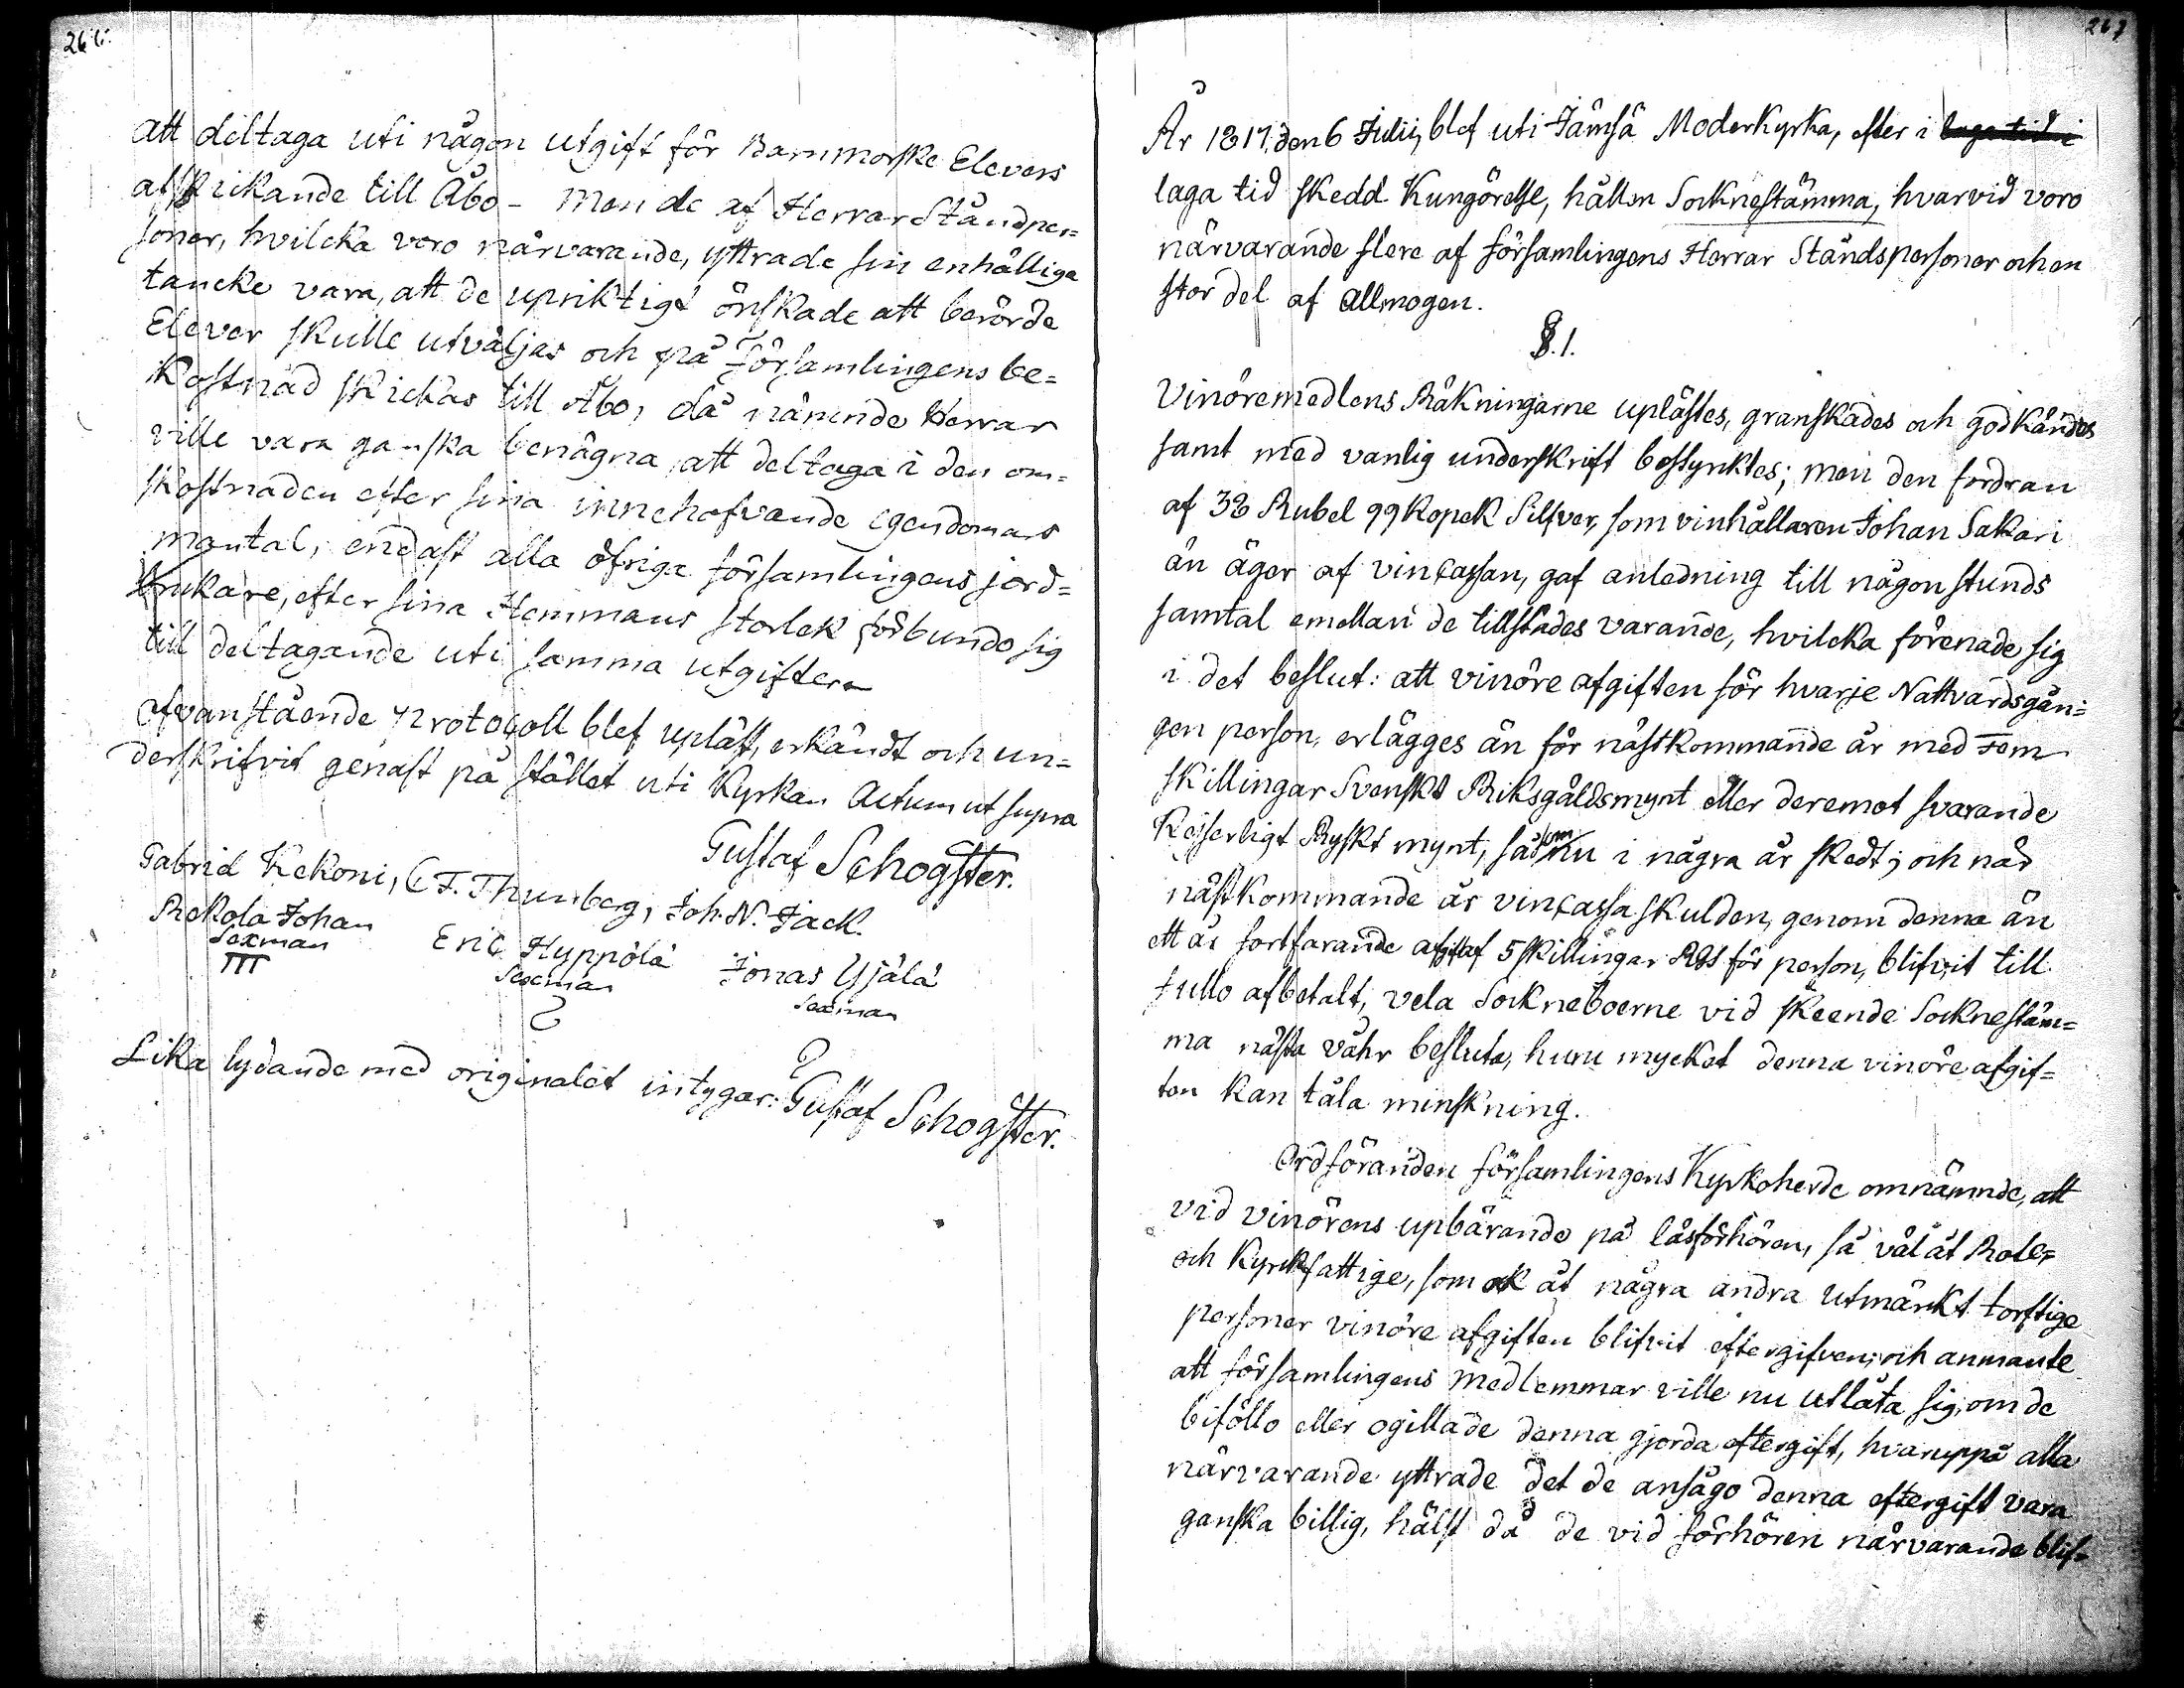 266.
att deltaga uti någon utgift för Barnmorske Elevers
afskickande till Åbo – Men de af Herrar Ståndper=
soner, hvilcka voro närvarande, yttrade sin enhälliga
tancke vara, att de upriktigt önskade att berörde
Elever skulle utväljas och på Församlingens be=
kostnad skickas till Åbo, då nämnde Herrar
ville vara ganska benägna att deltaga i den om=
kostnaden efter sina innehafvande egendomars
mantal; endast alla öfriga församlingens jord=
brukare, efter sina Hemmans storlek förbundo sig
till deltagande uti samma utgifter.
Ofvanstående Protocoll blef upläst, erkändt och un=
derskrifvit genast på stället uti Kyrkan Actum ut supra
Gustaf Schogster.
Gabriel Kekoni, C F. Thunberg, Joh. N. Jack.
Rekola Johan Eric Hyppölä Jonas Yjälä
Sexman Sexman Sexman
Lika lydande med originalet intygar: Gustaf Schogster.
267
År 1817, den 6 Julii, blef uti Jämsä Moderkyrka, efter i laga tid i
laga tid skedd Kungörelse, hållen Socknestämma, hvarvid voro
närvarande flere af församlingens Herrar Ståndspersoner och en
stor del af Allmogen.
§. 1.
Vinöremedlens Räkningarne uplästes, granskades och godkändes
samt med vanlig underskrift bestyrktes; men den fordran
af 38 Rubel 99 kopek Silfver, som vinhållaren Johan Sakari
än äger af vincassan, gaf anledning till någon stunds
samtal emellan de tillstädes varande, hvilcka förenade sig
i det beslut: att vinöre afgiften för hvarje Nattvardsgån=
gen person, erlägges än för nästkommande år med Fem
skillingar Svenskt Riksgäldsmynt eller deremot svarande
Kejserligt Ryskt mynt, såsom nu i några år skedt; och når
nästkommande år vincassa skulden, genom denna än
ett år fortfarande afgift af 5 skillingar RGs för person, blifvit till
fullo afbetalt, vela Sockneboerne vid skeende Socknestäm=
ma nästa våhr besluta, huru mycket denna vinöre afgif=
ten kan tåla minskning.
Ordföranden församlingens Kyrkoherde omnämnde, att
vid vinörens upbärande på läsförhören, så väl åt Rote=
och Kyrckfattige, som ock åt några andra utmärkt torftige
personer vinöre afgiften blifvit eftergifven; och anmante
att församlingens medlemmar ville nu utlåta sig, om de
biföllo eller ogillade denna gjorda eftergift, hvaruppå alla
närvarande yttrade det de ansågo denna eftergift vara
ganska billig, hälst då de vid förhören närvarande blif=